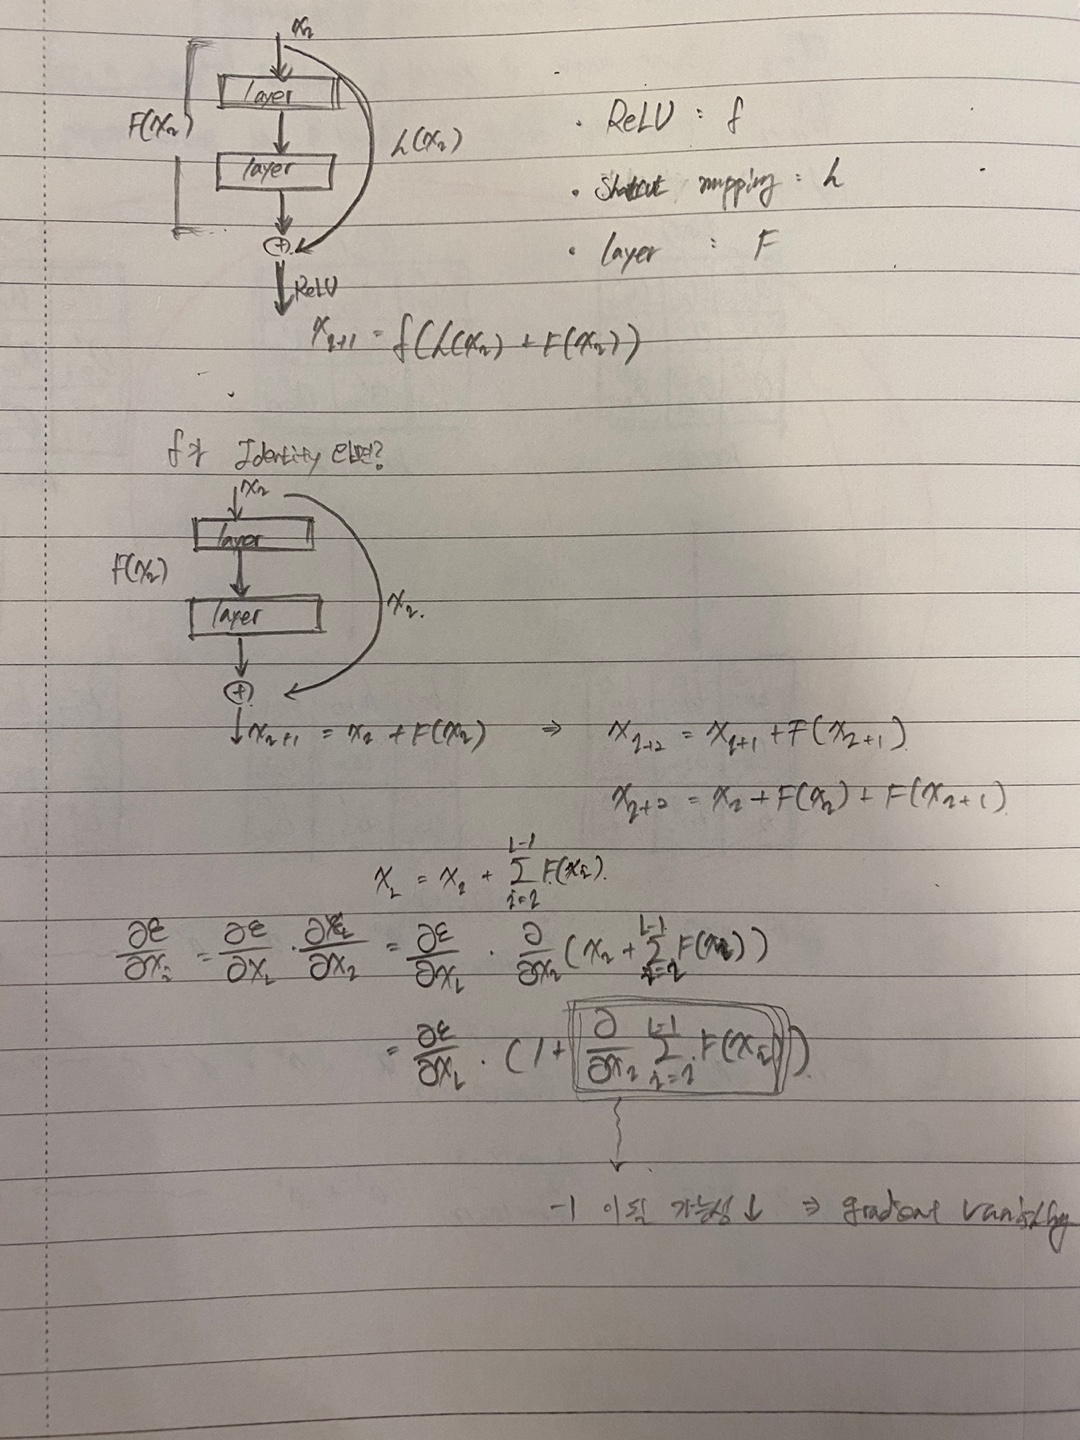 x_l
layer
F(x_l)
h(x_l)
layer
⊕
ReLU
• ReLU : f
• Shortcut mapping : h
• layer : F
x_{l+1} = f(h(x_l) + F(x_l))
f가 Identity 라면?
x_l
layer
F(x_l)
x_l.
layer
⊕
x_{l+1} = x_l + F(x_l) ⇒ x_{l+2} = x_{l+1} + F(x_{l+1})
x_{l+2} = x_l + F(x_l) + F(x_{l+1})
x_L = x_l + Σ_{i=l}^{L-1} F(x_i).
∂ε/∂x_l = ∂ε/∂x_L · ∂x_L/∂x_l = ∂ε/∂x_L · ∂/∂x_l (x_l + Σ_{i=l}^{L-1} F(x_i))
= ∂ε/∂x_L · (1 + ∂/∂x_l Σ_{i=l}^{L-1} F(x_i)).
-1 이 될 가능성↓ ⇒ gradient vanishing